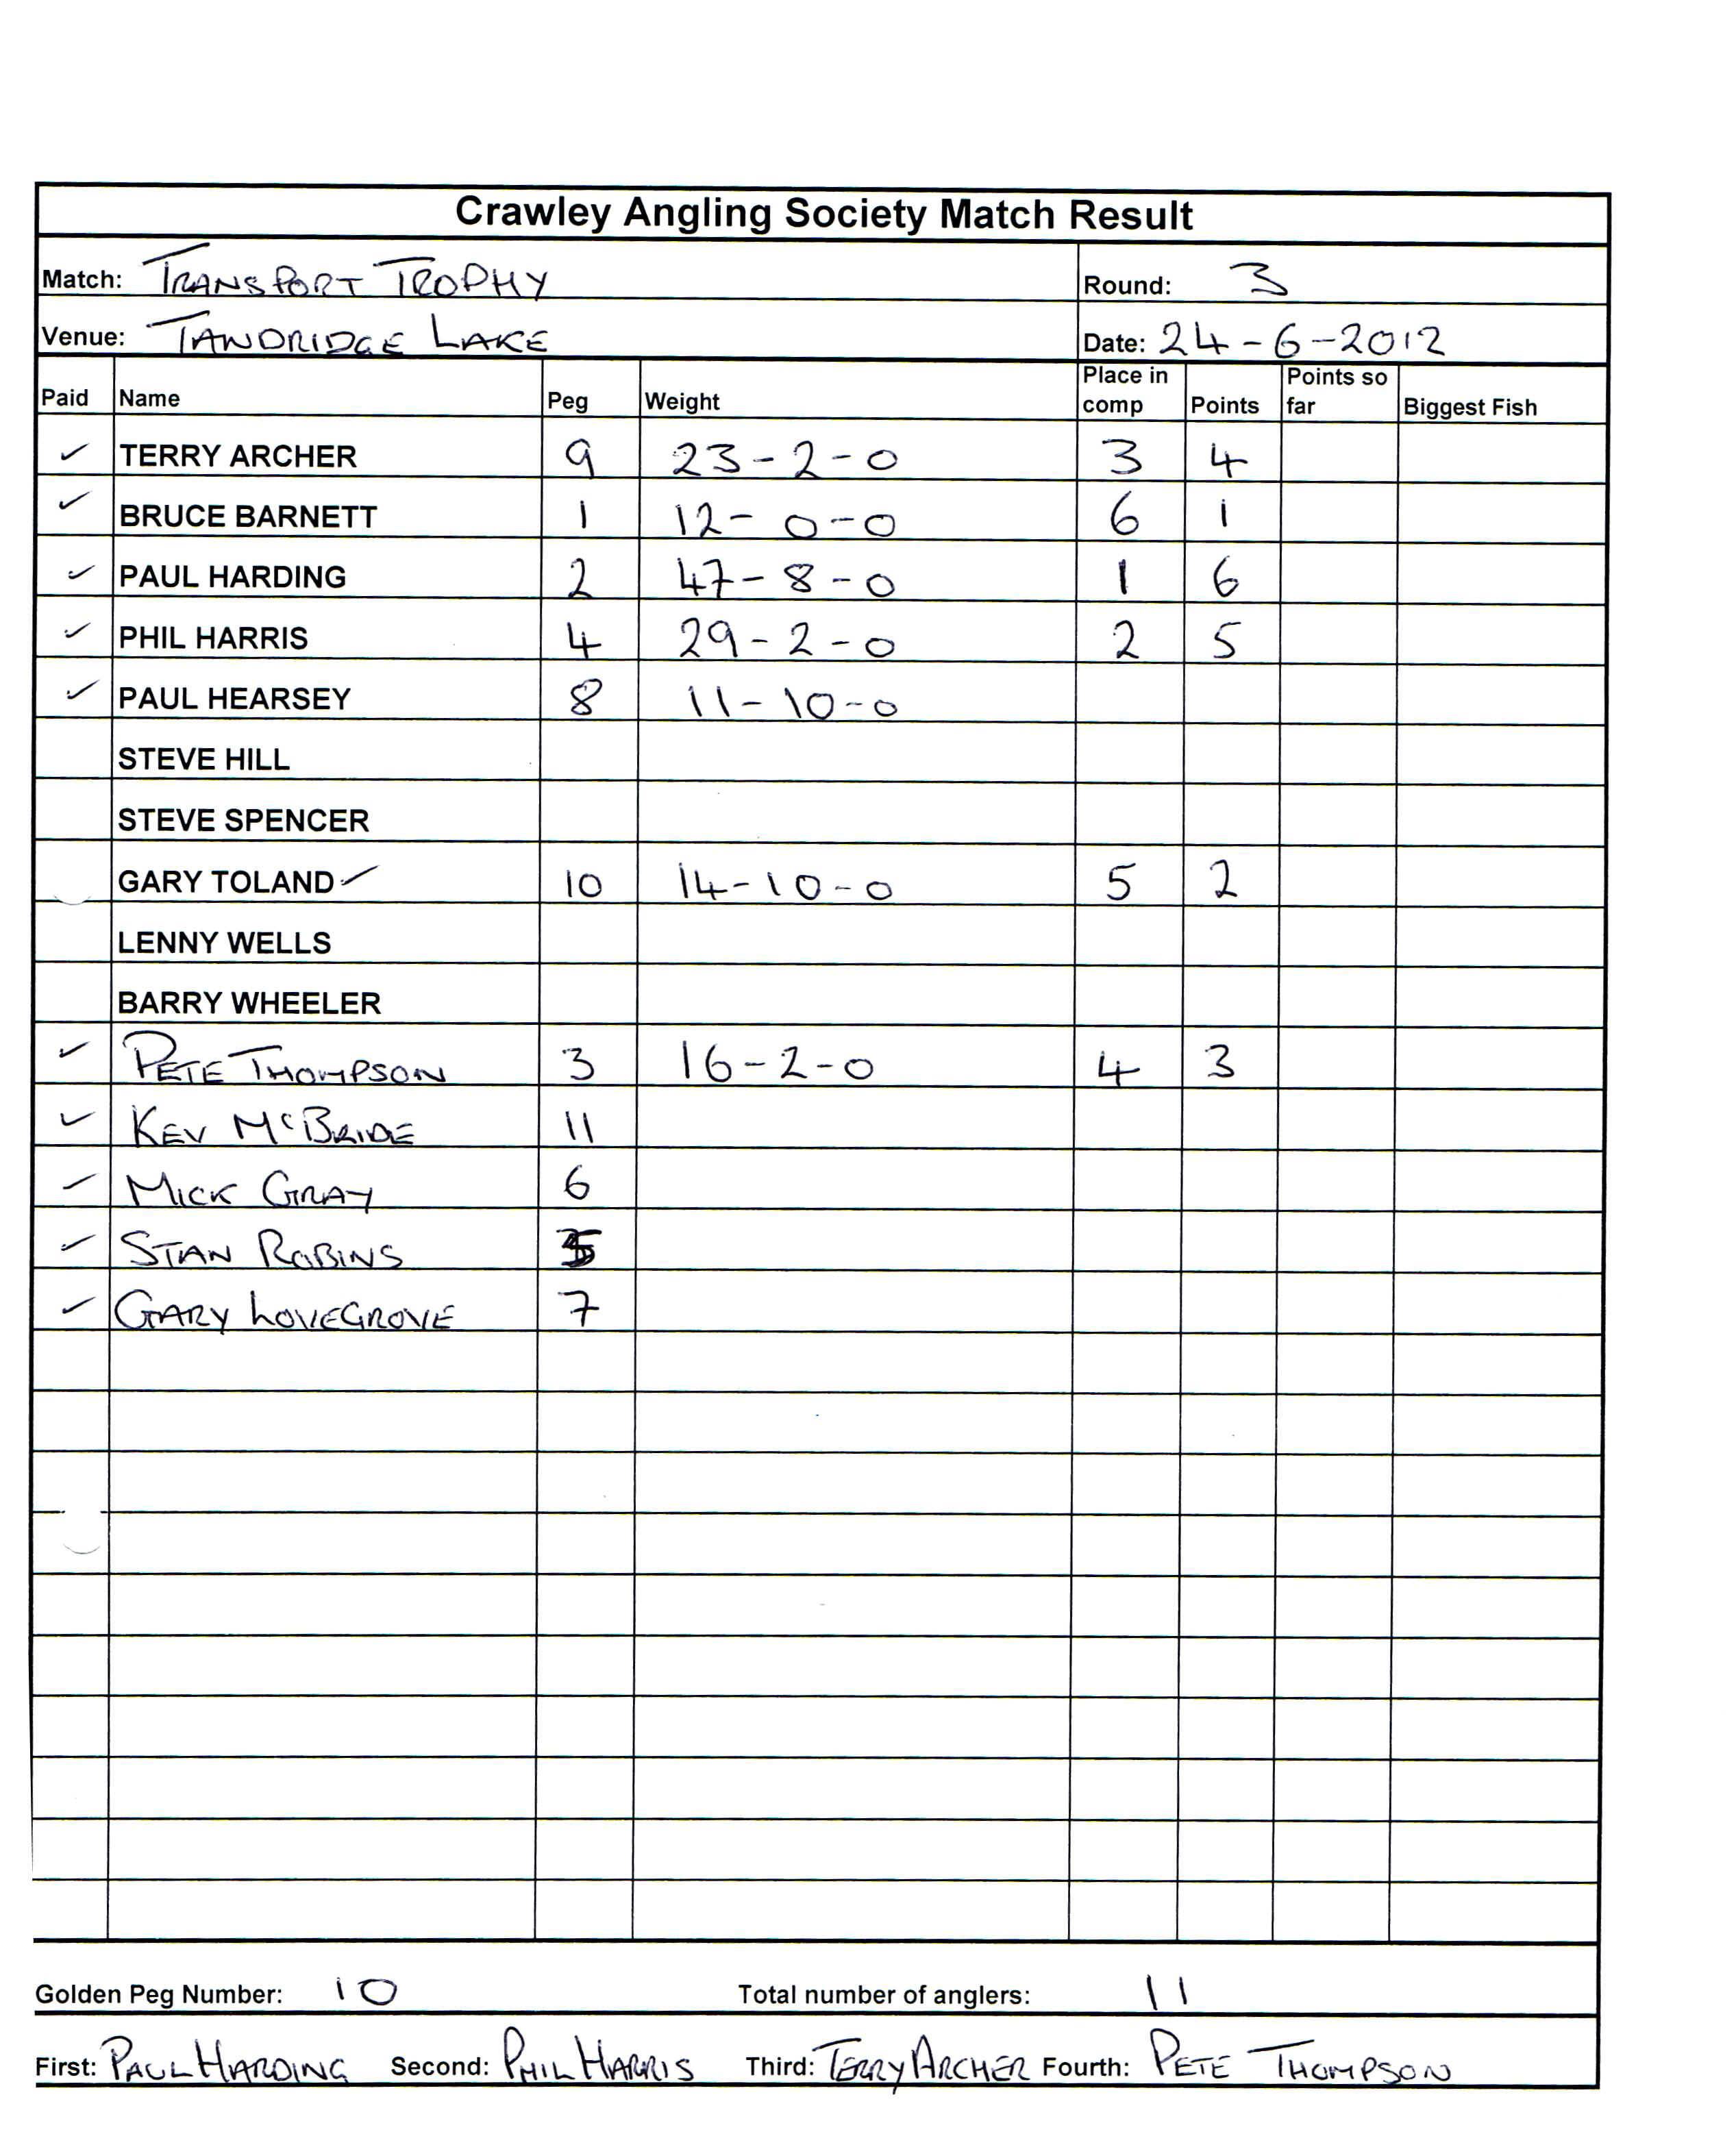 Crawley Angling Society Match Result
Match: TRANSPORT TROPHY Round: 3
Venue: TANDRIDGE LAKE Date: 24-6-2012
Paid Name Peg Weight Place in comp Points Points so far Biggest Fish
✓ TERRY ARCHER 9 23-2-0 3 4
✓ BRUCE BARNETT 1 12-0-0 6 1
✓ PAUL HARDING 2 47-8-0 1 6
✓ PHIL HARRIS 4 29-2-0 2 5
✓ PAUL HEARSEY 8 11-10-0
STEVE HILL
STEVE SPENCER
GARY TOLAND ✓ 10 14-10-0 5 2
LENNY WELLS
BARRY WHEELER
✓ PETE THOMPSON 3 16-2-0 4 3
✓ KEV McBRIDE 11
✓ MICK GRAY 6
✓ STAN ROBINS 5
✓ GARY LOVEGROVE 7
Golden Peg Number: 10 Total number of anglers: 11
First: PAUL HARDING Second: PHIL HARRIS Third: TERRY ARCHER Fourth: PETE THOMPSON